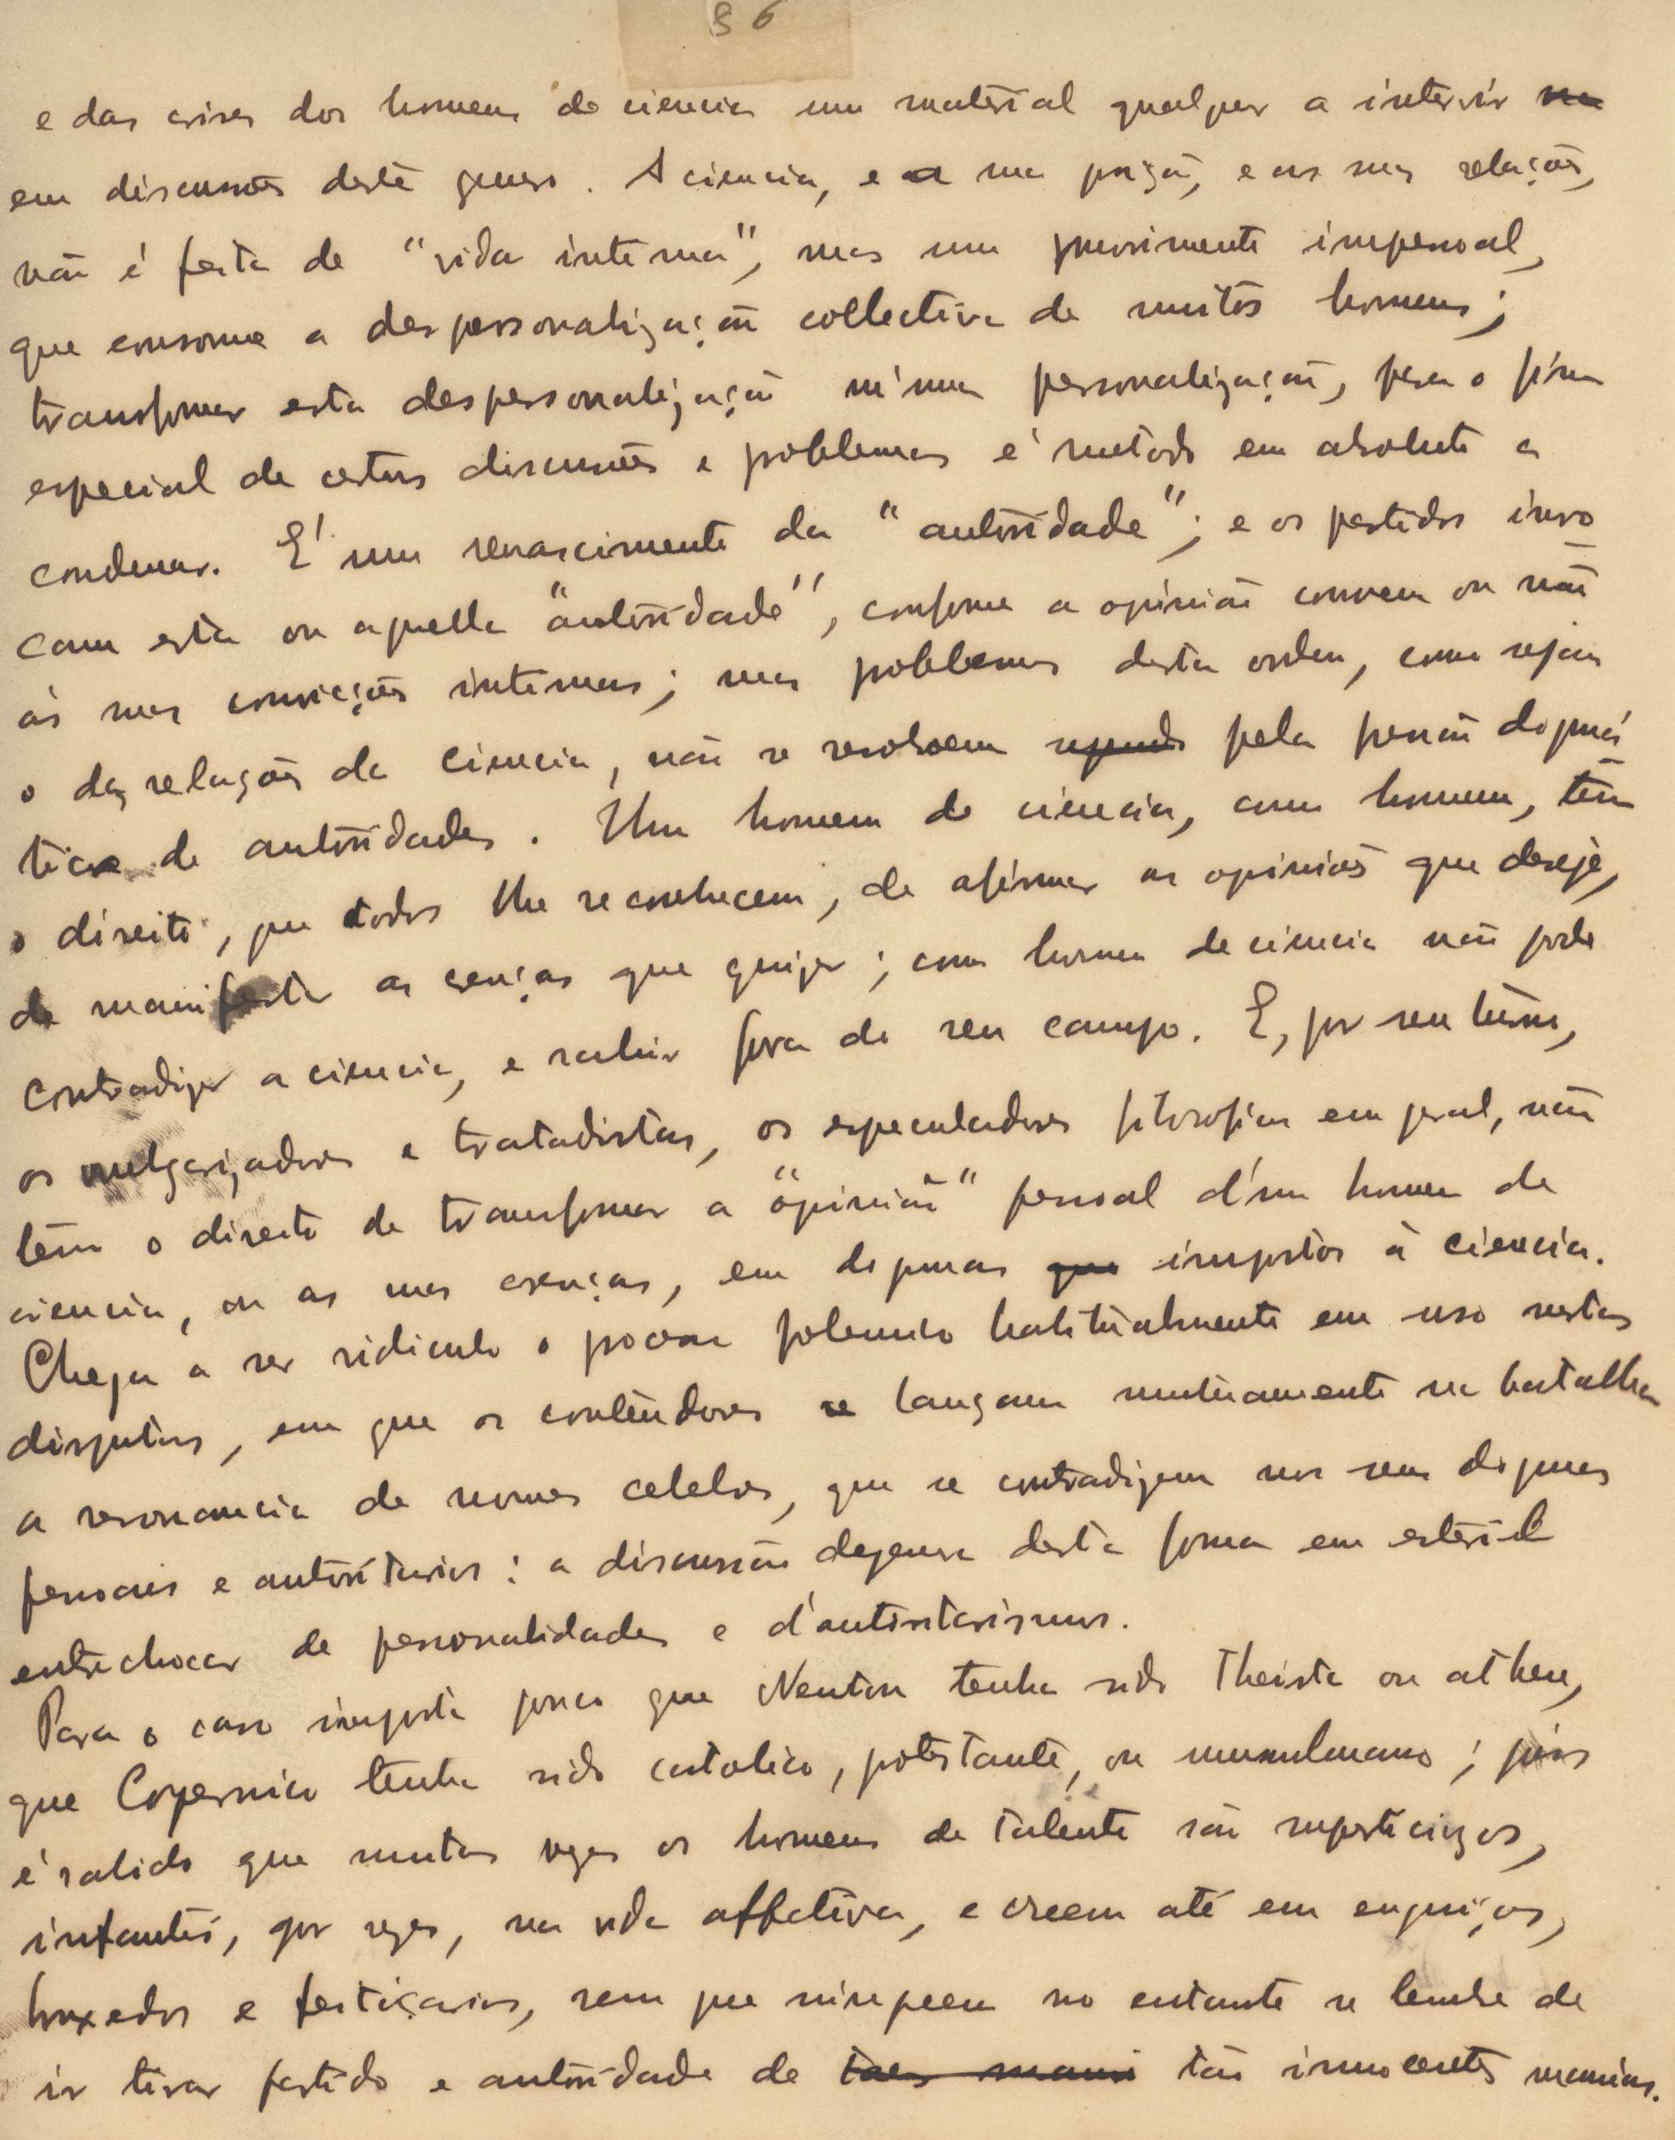 36
e das crises dos homens de ciencia um material qualquer a intervir na
em discussões deste genero. A ciencia, e a sua posição, e as suas relações,
não é feita de "vida interna", mas um movimento impessoal,
que consome a despersonalização collectiva de muitos homens;
transformar esta despersonalização n'uma personalização, para o fim
especial de certas discussões e problemas é metodo em absoluto a
condenar. É um renascimento da "autoridade"; e os partidos invo
cam esta ou aquella "autoridade", conforme a opinião convem ou não
ás suas convicções internas; mas problemas desta ordem, como sejam
o das relações da ciencia, não se resolvem pela pressão dogmá
tica de autoridades. Um homem de ciencia, como homem, têm
o direito, que todos lhe reconhecem, de afirmar as opiniões que deseje,
de manifestar as crenças que quizer; como homem de ciencia não pode
contradizer a ciencia, e sahir fora de seu campo. E, por seu turno,
os vulgarizadores e tratadistas, os especuladores filosofico em geral, não
têm o direito de transformar a "opinião" pessoal d'um homem de
ciencia, ou as suas crenças, em dogmas que impostos á ciencia.
Chega a ser ridiculo o processo polemico habitualmente em uso nestas
disputas, em que os contendores se lançam mutuamente na batalha
a resonancia de nomes celebres, que se contradizem nos seus dogmas
pessoais e autoritarios: a discussão degenera desta forma em esteril
entrechocar de personalidades e d'autoritarismos.
Para o caso importa pouco que Newton tenha sido Theista ou atheu,
que Copernico tenha sido catolico, protestante, ou musulmano; pois
é sabido que muitas vezes os homens de talento são supersticiosos,
infantis, por vezes, na vida affectiva, e creem até em enguiços,
bruxedos e feitiçarias, sem que ninguem no entanto se lembre de
ir tirar partido e autoridade de taes mani tão innocentes manias.